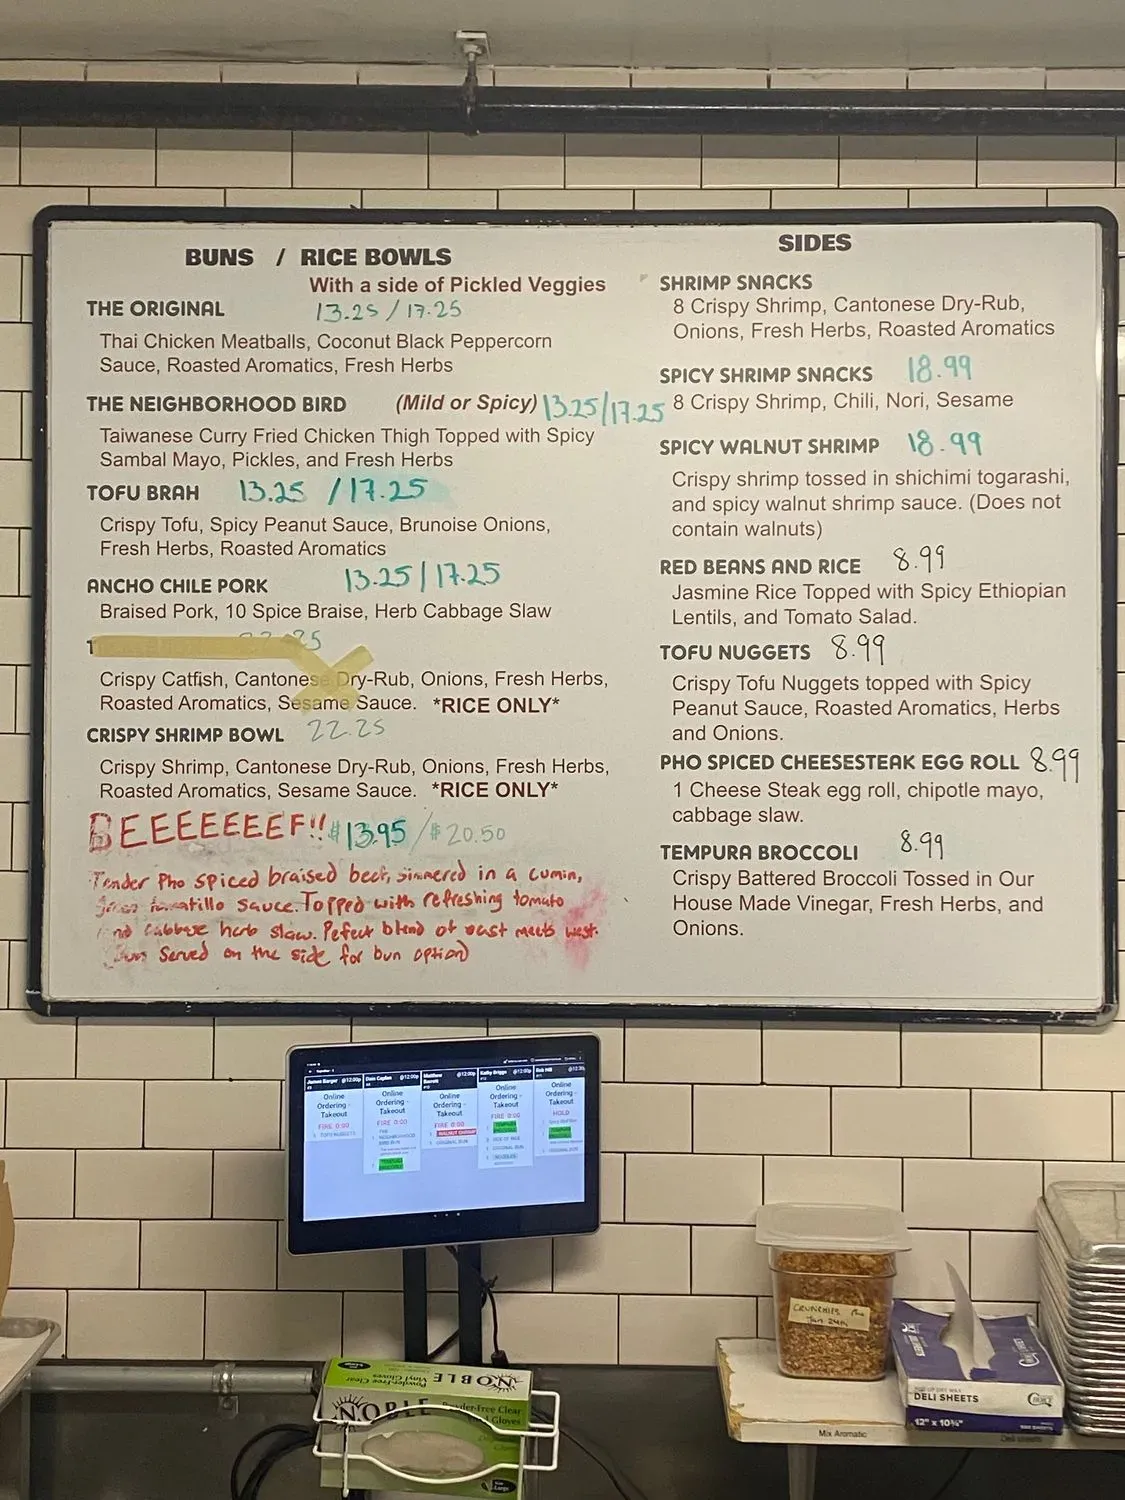 BUNS / RICE BOWLS
With a side of Pickled Veggies
THE ORIGINAL 13.25 / 17.25
Thai Chicken Meatballs, Coconut Black Peppercorn
Sauce, Roasted Aromatics, Fresh Herbs
THE NEIGHBORHOOD BIRD (Mild or Spicy) 13.25/17.25
Taiwanese Curry Fried Chicken Thigh Topped with Spicy
Sambal Mayo, Pickles, and Fresh Herbs
TOFU BRAH 13.25 / 17.25
Crispy Tofu, Spicy Peanut Sauce, Brunoise Onions,
Fresh Herbs, Roasted Aromatics
ANCHO CHILE PORK 13.25 | 17.25
Braised Pork, 10 Spice Braise, Herb Cabbage Slaw
Crispy Catfish, Cantonese Dry-Rub, Onions, Fresh Herbs,
Roasted Aromatics, Sesame Sauce. *RICE ONLY*
CRISPY SHRIMP BOWL 22.25
Crispy Shrimp, Cantonese Dry-Rub, Onions, Fresh Herbs,
Roasted Aromatics, Sesame Sauce. *RICE ONLY*
BEEEEEEEF!! $13.95 / $20.50
Tender Pho spiced braised beef, simmered in a cumin,
tomatillo sauce. Topped with refreshing tomato
and cabbage herb slaw. Pefect blend of east meets west.
Served on the side for bun option)
SIDES
SHRIMP SNACKS
8 Crispy Shrimp, Cantonese Dry-Rub,
Onions, Fresh Herbs, Roasted Aromatics
SPICY SHRIMP SNACKS 18.99
8 Crispy Shrimp, Chili, Nori, Sesame
SPICY WALNUT SHRIMP 18.99
Crispy shrimp tossed in shichimi togarashi,
and spicy walnut shrimp sauce. (Does not
contain walnuts)
RED BEANS AND RICE 8.99
Jasmine Rice Topped with Spicy Ethiopian
Lentils, and Tomato Salad.
TOFU NUGGETS 8.99
Crispy Tofu Nuggets topped with Spicy
Peanut Sauce, Roasted Aromatics, Herbs
and Onions.
PHO SPICED CHEESESTEAK EGG ROLL 8.99
1 Cheese Steak egg roll, chipotle mayo,
cabbage slaw.
TEMPURA BROCCOLI 8.99
Crispy Battered Broccoli Tossed in Our
House Made Vinegar, Fresh Herbs, and
Onions.
James Barger @12:00p
Online
Ordering -
Takeout
FIRE 0:00
1 TOFU NUGGETS
Dain Caplan @12:00p
Online
Ordering -
Takeout
FIRE 0:00
NEIGHBORHOOD
BIRD BUN
Matthew @12:00p
Barrett
Online
Ordering -
Takeout
FIRE 0:00
WALNUT SHRIMP
1 ORIGINAL BUN
Kathy Briggs @12:00p
Online
Ordering -
Takeout
FIRE 0:00
SIDE OF RICE
ORIGINAL BUN
Rob Hill @12:30
Online
Ordering -
Takeout
HOLD
ORIGINAL BUN
CRUNCHIES
Jan 24th
DELI SHEETS
12" x 10¾"
Mix Aromatic
Deli sheets
NOBLE
Powder-Free Clear
Vinyl Gloves
NOBLE
Powder-Free Clear
Gloves
Large